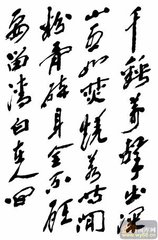 千鎚萬擊出深
山烈火焚燒若等閒
粉骨碎身全不顾
要留清白在人间